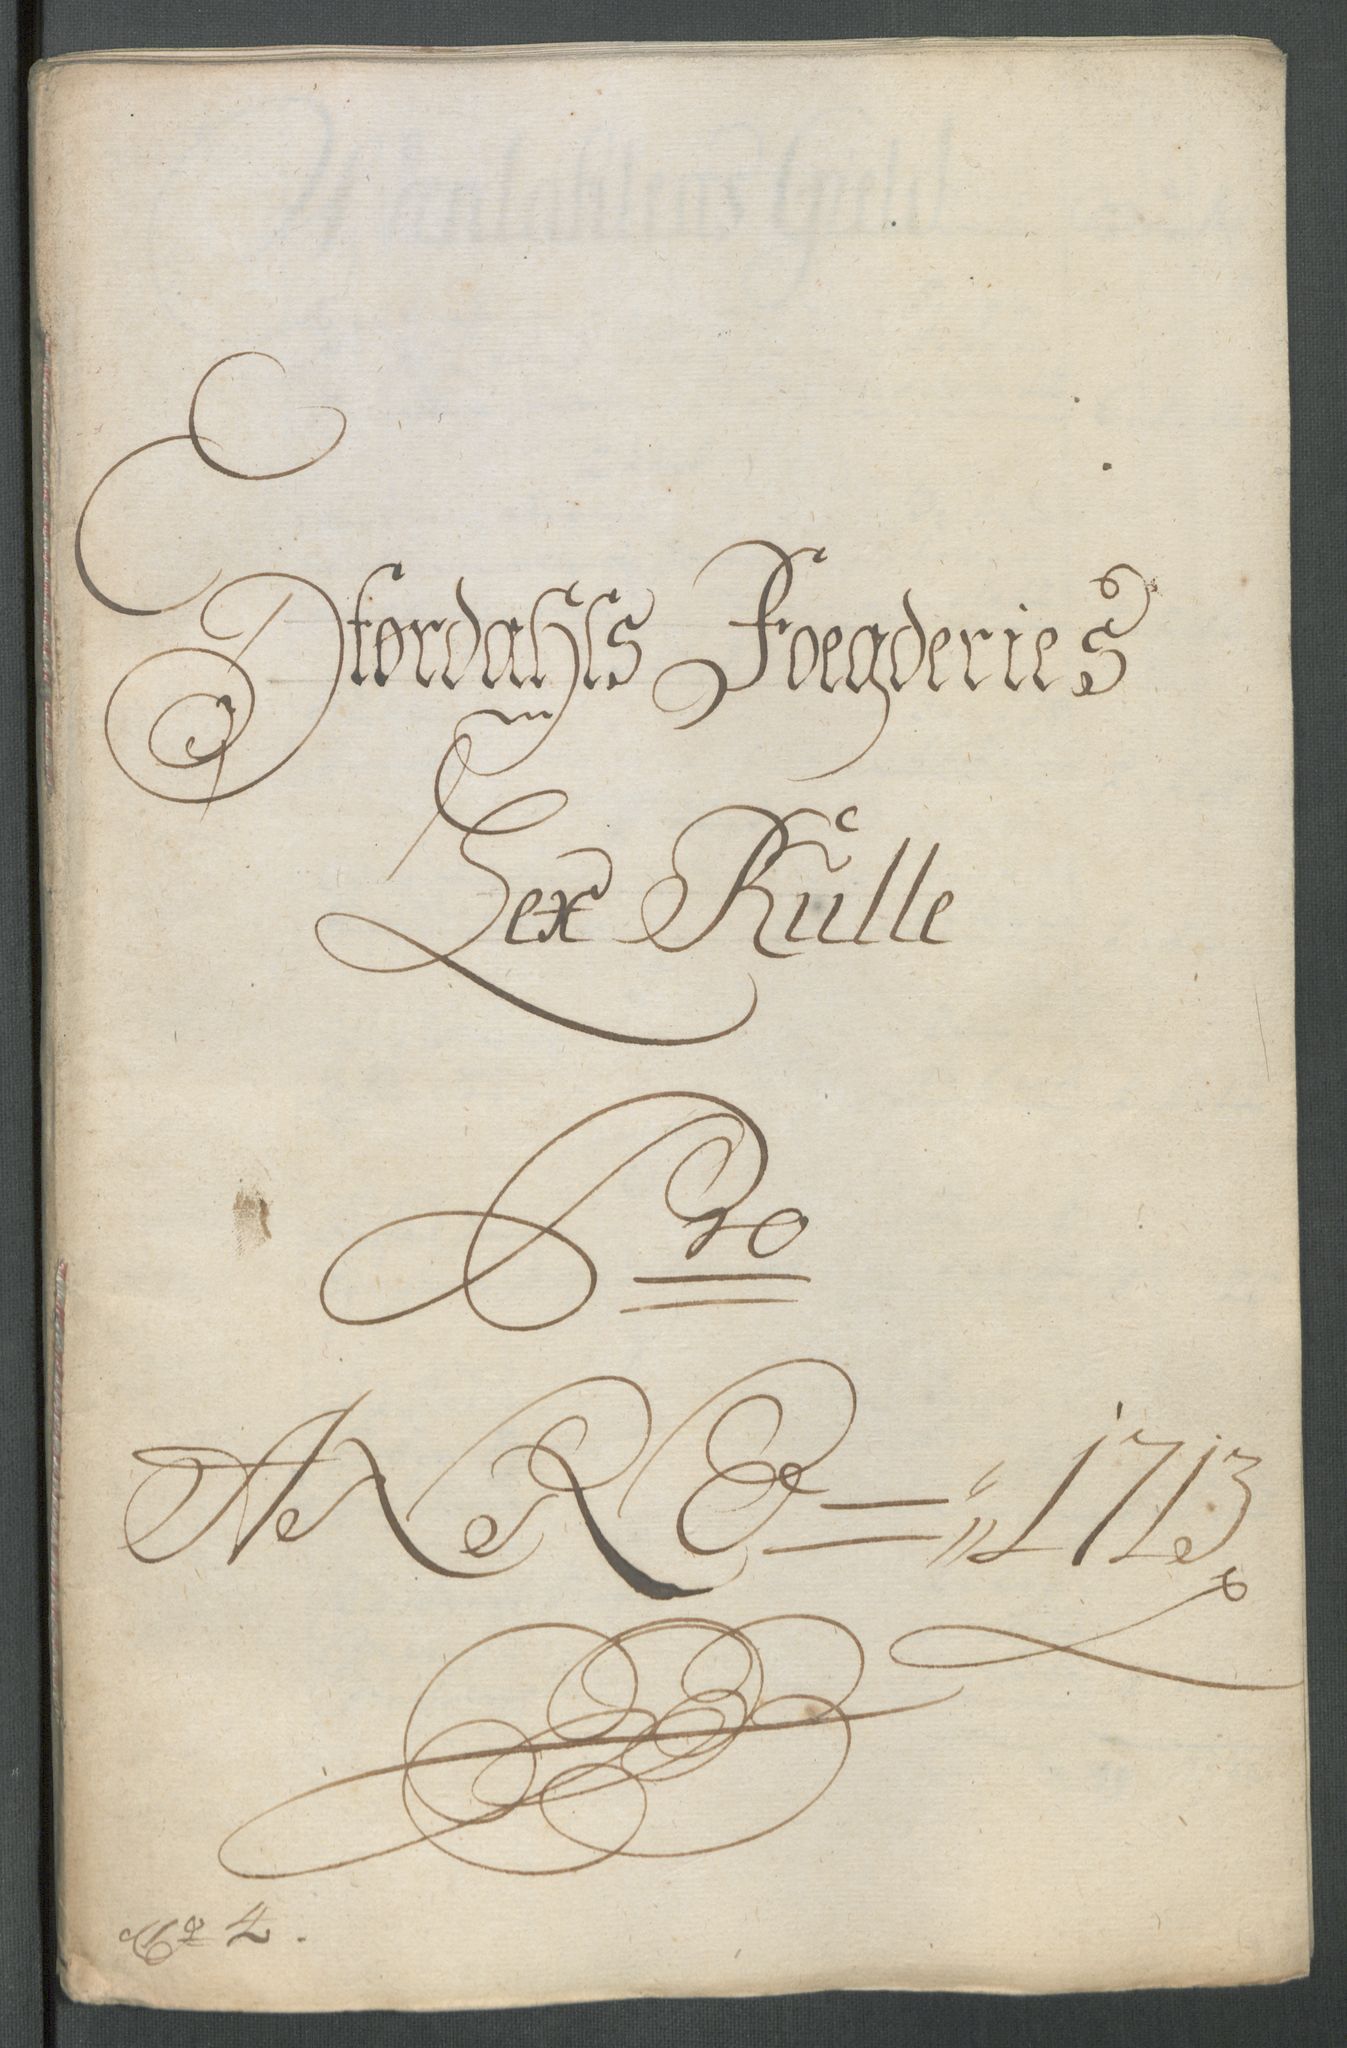 Størdahls Foegderies
Lex Rulle
Pro
ANNO = 1713
No 4.